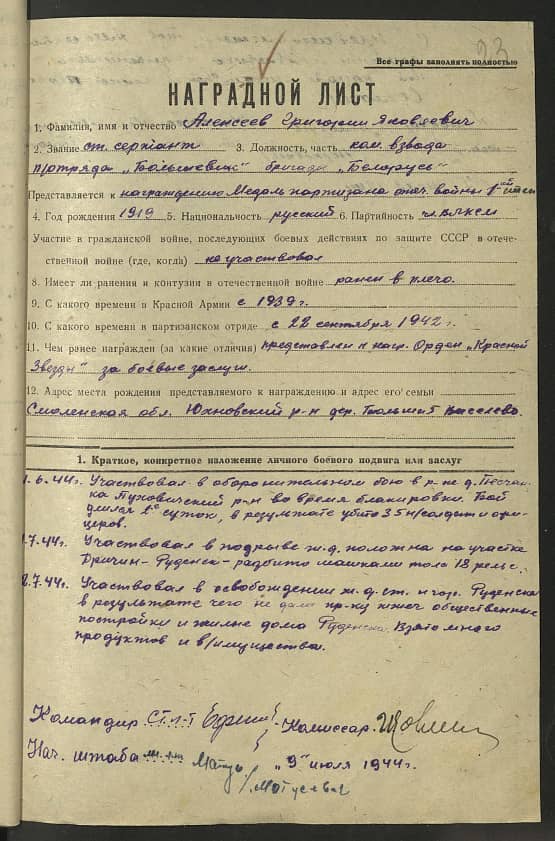 23
Все графы заполнять полностью
НАГРАДНОЙ ЛИСТ
1. Фамилия, имя и отчество Алексеев Григорий Яковлевич
2. Звание ст. сержант 3. Должность, часть ком. взвода
п/отряда „Большевик" бригады „Беларусь"
Представляется к награждению Медаль партизана отеч. войны 1ой степ
4. Год рождения 1919 5. Национальность русский 6. Партийность чл. ВЛКСМ
Участие в гражданской войне, последующих боевых действиях по защите СССР в отече-
ственной войне (где, когда) не участвовал
8. Имеет ли ранения и контузии в отечественной войне ранен в плечо.
9. С какого времени в Красной Армии с 1939 г.
10. С какого времени в партизанском отряде с 22 сентября 1942 г.
11. Чем ранее награжден (за какие отличия) представлен к нагр. Орден „Красной
Звезды" за боевые заслуги.
12. Адрес места рождения представляемого к награждению и адрес его семьи
Смоленская обл. Юхновский р-н дер.
1. Краткое, конкретное изложение личного боевого подвига или заслуг
1.6.44г. Участвовал в оборонительном бою в р-не д. Песчан-
ка Пуховичский р-н во время блокировки. Бой
длился 2е суток, в результате убито 35 н/солдат и офи-
церов.
.7.44г. Участвовал в подрыве ж.д. полотна на участке
Дричин-Руденск - разбито шашками тола 18 рельс.
2.7.44г. Участвовал в освобождении ж.д. ст. и гор. Руденска
в результате чего не дали пр-ку сжечь общественные
постройки и жилые дома Руденска. Взято много
продуктов и в/имущества.
Командир ст. л-т Комиссар
Нач. штаба „9" июля 1944г.
/Матусевич